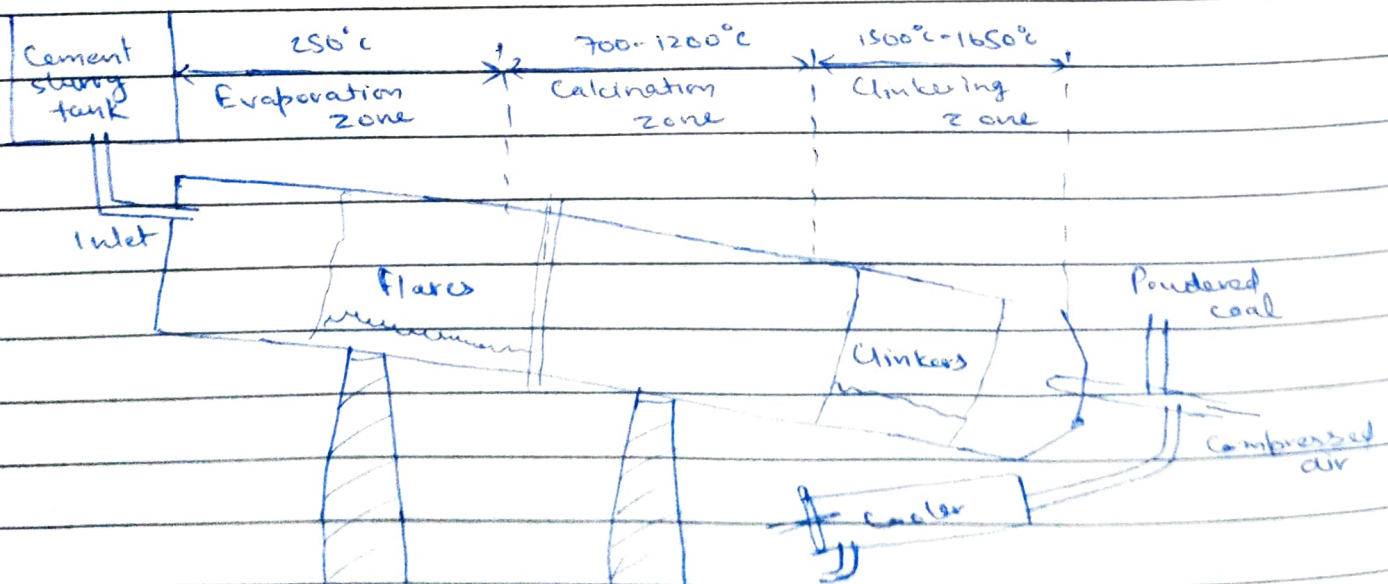 Cement
slurry
tank
250°c
Evaporation
zone
700-1200°c
Calcination
zone
1500°c-1650°c
Clinkering
zone
Inlet
Flares
Clinkers
Powdered
coal
Compressed
air
Cooler